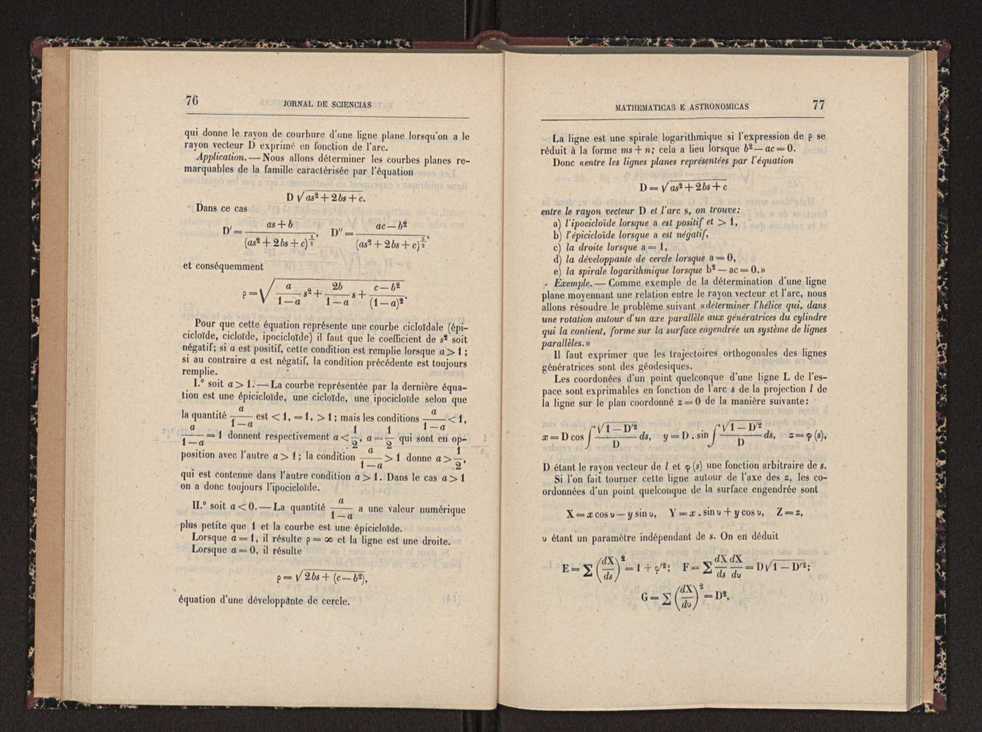 76 JORNAL DE SCIENCIAS
qui donne le rayon de courbure d'une ligne plane lorsqu'on a le
rayon vecteur D exprimé en fonction de l'arc.
Application. — Nous allons déterminer les courbes planes re-
marquables de la famille caractérisée par l'équation
D √(as² + 2bs + c).
Dans ce cas
D' = (as + b)/(as² + 2bs + c)^(1/2), D'' = (ac — b²)/(as² + 2bs + c)^(3/2),
et conséquemment
ρ = √(a/(1 — a) s² + 2b/(1 — a) s + (c — b²)/(1 — a)²).
Pour que cette équation représente une courbe cicloïdale (épi-
cicloïde, cicloïde, ipocicloïde) il faut que le coefficient de s² soit
négatif; si a est positif, cette condition est remplie lorsque a > 1;
si au contraire a est négatif, la condition précédente est toujours
remplie.
I.° soit a > 1. — La courbe représentée par la dernière équa-
tion est une épicicloïde, une cicloïde, une ipocicloïde selon que
la quantité a/(1 — a) est < 1, = 1, > 1; mais les conditions a/(1 — a) < 1,
a/(1 — a) = 1 donnent respectivement a < 1/2, a = 1/2 qui sont en op-
position avec l'autre a > 1; la condition a/(1 — a) > 1 donne a > 1/2,
qui est contenue dans l'autre condition a > 1. Dans le cas a > 1
on a donc toujours l'ipocicloïde.
II.° soit a < 0. — La quantité a/(1 — a) a une valeur numérique
plus petite que 1 et la courbe est une épicicloïde.
Lorsque a = 1, il résulte ρ = ∞ et la ligne est une droite.
Lorsque a = 0, il résulte
ρ = √(2bs + (c — b²)),
équation d'une développante de cercle.
MATHEMATICAS E ASTRONOMICAS 77
La ligne est une spirale logarithmique si l'expression de ρ se
réduit à la forme ms + n; cela a lieu lorsque b² — ac = 0.
Donc «entre les lignes planes représentées par l'équation
D = √(as² + 2bs + c)
entre le rayon vecteur D et l'arc s, on trouve:
a) l'ipocicloïde lorsque a est positif et > 1,
b) l'épicicloïde lorsque a est négatif,
c) la droite lorsque a = 1,
d) la développante de cercle lorsque a = 0,
e) la spirale logarithmique lorsque b² — ac = 0.»
Exemple. — Comme exemple de la détermination d'une ligne
plane moyennant une relation entre le rayon vecteur et l'arc, nous
allons résoudre le problème suivant «déterminer l'hélice qui, dans
une rotation autour d'un axe parallèle aux génératrices du cylindre
qui la contient, forme sur la surface engendrée un système de lignes
parallèles.»
Il faut exprimer que les trajectoires orthogonales des lignes
génératrices sont des géodesiques.
Les coordonnées d'un point quelconque d'une ligne L de l'es-
pace sont exprimables en fonction de l'arc s de la projection l de
la ligne sur le plan coordonné z = 0 de la manière suivante:
x = D cos ∫ √(1 — D'²)/D ds, y = D . sin ∫ √(1 — D'²)/D ds, z = φ (s),
D étant le rayon vecteur de l et φ (s) une fonction arbitraire de s.
Si l'on fait tourner cette ligne autour de l'axe des z, les co-
ordonnées d'un point quelconque de la surface engendrée sont
X = x cos υ — y sin υ, Y = x . sin υ + y cos υ, Z = z,
υ étant un paramètre indépendant de s. On en déduit
E = Σ (dX/ds)² = 1 + φ'²; F = Σ dX/ds dX/dυ = D√(1 — D'²;
G = Σ (dX/dυ)² = D².